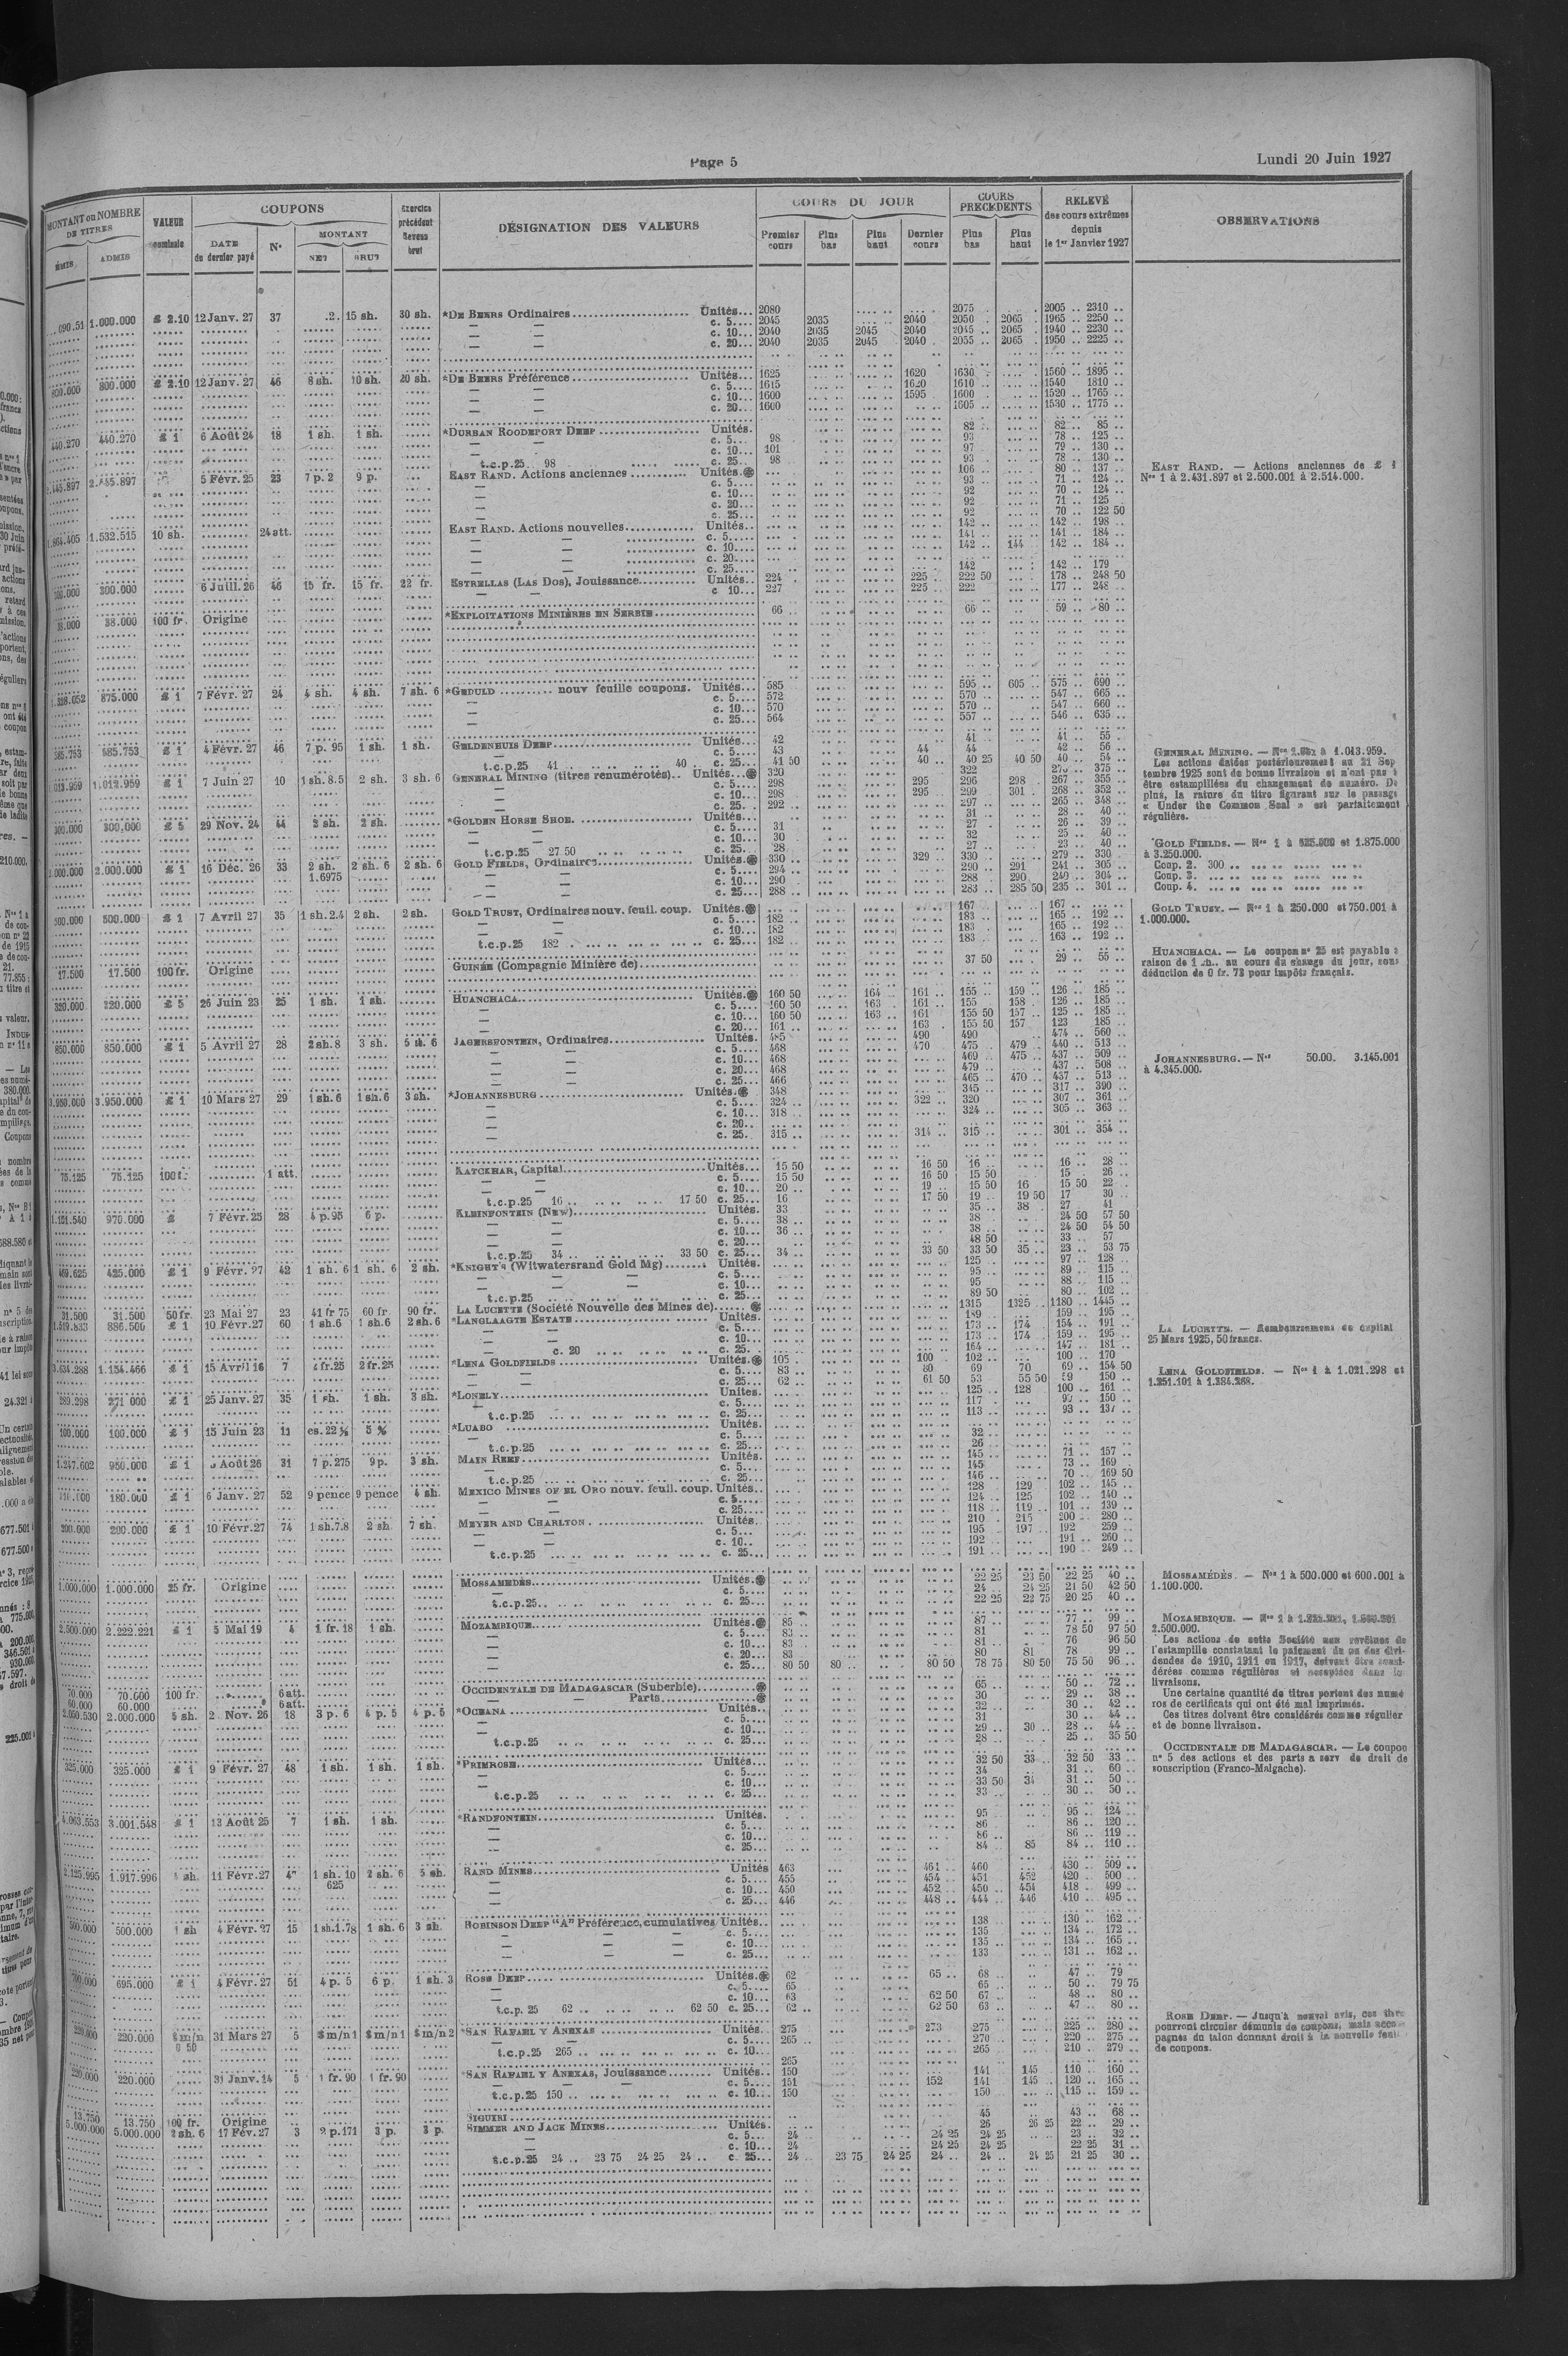 Page 5
Lundi 20 Juin 1927
MONTANT ou NOMBRE DE TITRES
ÉMIS ADMIS
VALEUR nominale
COUPONS
DATE du dernier payé
N°
MONTANT
NET BRUT
Exercice précédent Revenu brut
DÉSIGNATION DES VALEURS
COURS DU JOUR
Premier cours Plus bas Plus haut Dernier cours
COURS PRÉCÉDENTS
Plus bas Plus haut
RELEVÉ des cours extrêmes depuis le 1er Janvier 1927
OBSERVATIONS
1.000.000 £ 2.10 12 Janv. 27 37 15 sh. 30 sh. *DE BEERS Ordinaires Unités 2080 2075 2005 2310
c. 5 2045 2035 2040 2050 2065 1965 2250
c. 10 2040 2035 2045 2040 2045 2065 1940 2230
c. 20 2040 2035 2045 2040 2055 2065 1950 2225
800.000 800.000 £ 2.10 12 Janv. 27 46 8 sh. 10 sh. 20 sh. *DE BEERS Préférence Unités 1625 1620 1630 1560 1895
c. 5 1615 1620 1610 1540 1810
c. 10 1600 1595 1600 1520 1765
c. 20 1600 1605 1530 1775
440.270 440.270 £ 1 6 Août 24 18 1 sh. 1 sh. *DURBAN ROODEPORT DEEP Unités 82 82 85
c. 5 98 93 78 125
c. 10 101 97 79 130
t.c.p.25 98 c. 25 98 93 78 130
2.445.897 5 Févr. 25 23 7 p. 2 9 p. EAST RAND. Actions anciennes Unités 106 80 137
c. 5 93 71 124
c. 10 92 70 124
c. 20 92 71 125
c. 25 92 70 122 50
1.864.405 1.532.515 10 sh. 24 att. EAST RAND. Actions nouvelles Unités 142 142 198
c. 5 141 141 184
c. 10 142 144 142 184
c. 20
c. 25 142 142 179
300.000 300.000 6 Juill. 26 46 15 fr. 15 fr. 22 fr. ESTRELLAS (LAS DOS), Jouissance Unités 224 225 222 50 178 248 50
c 10 227 225 222 177 248
38.000 38.000 100 fr. Origine *EXPLOITATIONS MINIÈRES EN SERBIE 66 66 59 80
1.328.052 875.000 £ 1 7 Févr. 27 24 4 sh. 4 sh. 7 sh. 6 *GEDULD nouv feuille coupons. Unités 585 595 605 575 690
c. 5 572 570 547 665
c. 10 570 570 547 660
c. 25 564 557 546 635
585.753 585.753 £ 1 4 Févr. 27 46 7 p. 95 1 sh. 1 sh. GELDENHUIS DEEP Unités 42 41 41 55
c. 5 43 44 44 42 56
t.c.p.25 41 40 c. 25 41 50 40 40 25 40 50 40 54
1.013.959 £ 1 7 Juin 27 10 1 sh. 8.5 2 sh. 3 sh. 6 GENERAL MINING (titres renumérotés) Unités 320 322 375
c. 5 298 295 296 298 267 355
c. 10 298 295 299 301 268 352
c. 25 292 297 265 348
300.000 300.000 £ 5 29 Nov. 24 44 2 sh. 2 sh. *GOLDEN HORSE SHOE Unités 31 28 40
c. 5 31 27 26 39
c. 10 30 32 25 40
t.c.p.25 27 50 c. 25 28 27 23 40
2.000.000 2.000.000 £ 1 16 Déc. 26 33 2 sh. 1.6975 2 sh. 6 2 sh. 6 GOLD FIELDS, Ordinaires Unités 330 329 330 279 330
c. 5 294 290 291 241 305
c. 10 290 288 290 240 304
c. 25 288 283 285 50 235 301
500.000 500.000 £ 1 7 Avril 27 35 1 sh. 2.4 2 sh. 2 sh. GOLD TRUST, Ordinaires nouv. feuil. coup. Unités 167 167
c. 5 182 183 165 192
c. 10 182 183 165 192
t.c.p.25 182 c. 25 182 183 163 192
17.500 17.500 100 fr. Origine GUINÉE (Compagnie Minière de) 37 50 29 55
320.000 320.000 £ 5 26 Juin 23 25 1 sh. 1 sh. HUANCHACA Unités 160 50 164 161 155 159 126 185
c. 5 160 50 163 161 155 158 126 185
c. 10 160 50 163 161 155 50 157 125 185
c. 20 161 163 155 50 157 123 185
850.000 850.000 £ 1 5 Avril 27 28 2 sh. 8 3 sh. 5 sh. 6 JAGERSFONTEIN, Ordinaires Unités 485 490 490 474 560
c. 5 468 470 475 479 440 513
c. 10 468 469 475 437 509
c. 20 468 479 437 508
c. 25 466 465 470 437 513
3.950.000 3.950.000 £ 1 10 Mars 27 29 1 sh. 6 1 sh. 6 3 sh. *JOHANNESBURG Unités 348 345 317 390
c. 5 324 322 320 307 361
c. 10 318 324 305 363
c. 20
c. 25 315 314 315 301 354
75.125 75.125 100 f. 1 att. KATCHKAR, Capital Unités 15 50 16 50 16 16 28
c. 5 15 50 16 50 15 50 15 26
c. 10 20 19 15 50 16 15 50 22
t.c.p.25 16 17 50 c. 25 16 17 50 19 19 50 17 30
970.000 £ 7 Févr. 25 28 4 p. 95 6 p. KLEINFONTEIN (NEW) Unités 33 35 38 27 41
c. 5 38 38 24 50 57 50
c. 10 36 38 24 50 54 50
c. 20 48 50 33 57
t.c.p.25 34 33 50 c. 25 34 33 50 33 50 35 23 53 75
469.625 425.000 £ 1 9 Févr. 27 42 1 sh. 6 1 sh. 6 2 sh. *KNIGHT'S (Witwatersrand Gold Mg) Unités 125 97 128
c. 5 95 89 115
c. 10 95 88 115
t.c.p.25 c. 25 89 50 80 102
31.500 31.500 50 fr. 23 Mai 27 23 41 fr 75 60 fr. 90 fr. LA LUCETTE (Société Nouvelle des Mines de) 1315 1325 1180 1445
886.500 £ 1 10 Févr. 27 60 1 sh. 6 1 sh. 6 2 sh. 6 *LANGLAAGTE ESTATE Unités 189 159 195
c. 5 173 174 154 191
c. 10 173 174 159 195
c. 20 c. 25 164 147 181
1.154.466 £ 1 15 Avril 16 7 2 fr. 25 2 fr. 25 *LENA GOLDFIELDS Unités 105 100 102 100 170
c. 5 83 80 69 70 69 154 50
c. 25 62 61 50 53 55 50 59 150
289.298 271 000 £ 1 25 Janv. 27 35 1 sh. 1 sh. 3 sh. *LONELY Unités 125 128 100 161
c. 5 117 150
t.c.p.25 c. 25 113 93 137
100.000 100.000 £ 1 15 Juin 23 11 5 % *LUABO Unités
c. 5 32
t.c.p.25 c. 25 26
1.247.602 950.000 £ 1 Août 26 31 7 p. 275 9 p. 3 sh. MAIN REEF Unités 145 71 157
c. 5 145 73 169
t.c.p.25 c. 25 146 70 169 50
180.000 £ 1 6 Janv. 27 52 9 pence 9 pence 4 sh. MEXICO MINES OF EL ORO nouv. feuil. coup. Unités 128 129 102 145
c. 5 124 125 102 140
c. 25 118 119 101 139
200.000 200.000 £ 1 10 Févr. 27 74 1 sh. 7.8 2 sh. 7 sh. MEYER AND CHARLTON Unités 210 215 200 280
c. 5 195 197 192 259
c. 10 192 191 260
t.c.p.25 c. 25 191 190 249
1.000.000 1.000.000 25 fr. Origine MOSSAMÉDÈS Unités 22 25 23 50 22 25 40
c. 5 24 24 25 21 50 42 50
t.c.p.25 c. 25 22 25 22 75 20 25 40
2.500.000 2.222.221 £ 1 5 Mai 19 4 1 fr. 18 1 sh. MOZAMBIQUE Unités 85 87 77 99
c. 5 83 81 78 50 97 50
c. 10 83 81 76 96 50
c. 20 83 80 81 78 99
c. 25 80 50 80 80 50 78 75 80 50 75 50 96
70.000 70.000 100 fr. 6 att. OCCIDENTALE DE MADAGASCAR (Suberbie) 65 50 72
60.000 60.000 6 att. Parts 30 29 38
2.000.000 5 sh. 2 Nov. 26 18 3 p. 6 4 p. 5 4 p. 5 *OCEANA Unités 32 30 42
c. 5 31 30 44
c. 10 29 30 28 44
t.c.p.25 c. 25 28 25 35 50
325.000 325.000 £ 1 9 Févr. 27 48 1 sh. 1 sh. 1 sh. *PRIMROSE Unités 32 50 33 32 50 33
c. 5 34 31 60
c. 10 33 50 34 31 50
t.c.p.25 c. 25 33 30 50
4.063.553 3.001.548 £ 1 13 Août 25 7 1 sh. 1 sh. *RANDFONTEIN Unités 95 95 124
c. 5 86 86 120
c. 10 86 86 119
c. 25 84 85 84 110
2.125.995 1.917.996 sh. 11 Févr. 27 1 sh. 10 625 2 sh. 6 5 sh. RAND MINES Unités 463 461 460 430 509
c. 5 455 454 451 452 420 500
c. 10 450 452 450 454 418 499
c. 25 446 448 444 446 410 495
500.000 500.000 1 sh 4 Févr. 27 15 1 sh. 1.78 1 sh. 6 3 sh. ROBINSON DEEP "A" Préférence, cumulatives Unités 138 130 162
c. 5 135 134 172
c. 10 135 134 165
c. 25 133 131 162
700.000 695.000 £ 1 4 Févr. 27 51 4 p. 5 6 p. 1 sh. 3 ROSE DEEP Unités 62 65 68 47 79
c. 5 65 65 50 79 75
c. 10 63 62 50 67 48 80
t.c.p. 25 62 62 50 c. 25 62 62 50 63 47 80
220.000 220.000 $ m/n 0 50 31 Mars 27 5 $ m/n 1 $ m/n 1 $ m/n 2 *SAN RAFAEL Y ANEXAS Unités 275 273 275 225 280
c. 5 265 270 220 275
t.c.p.25 265 c. 10 265 265 210 279
220.000 220.000 31 Janv. 14 5 1 fr. 90 1 fr. 90 *SAN RAFAEL Y ANEXAS, Jouissance Unités 150 141 145 110 160
c. 5 151 152 141 145 120 165
t.c.p.25 150 c. 10 150 150 115 159
13.750 13.750 100 fr. Origine SIGUIRI 45 43 68
5.000.000 5.000.000 2 sh. 6 17 Fév. 27 3 2 p. 171 3 p. 3 p. SIMMER AND JACK MINES Unités 26 26 25 22 29
c. 5 24 24 25 24 25 23 32
c. 10 24 24 25 24 25 22 25 31
t.c.p.25 24 23 75 24 25 24 c. 25 24 23 75 24 25 24 24 24 25 21 25 30
EAST RAND. — Actions anciennes de £ 1
Nos 1 à 2.431.897 et 2.500.001 à 2.514.000.
GENERAL MINING. — Nos à 1.013.959.
Les actions datées postérieurement au 21 Sep
tembre 1925 sont de bonne livraison et n'ont pas
être estampillées du changement de numéro. De
plus, la rature du titre figurant sur le passage
« Under the Common Seal » est parfaitement
régulière.
GOLD FIELDS. — Nos 1 à 525.000 et 1.875.000
à 3.250.000.
Coup. 2. 300
Coup. 3.
Coup. 4.
GOLD TRUST. — Nos 1 à 250.000 et 750.001 à
1.000.000.
HUANCHACA. — Le coupon n° 25 est payable
raison de 1 sh. au cours du change du jour, sous
déduction de 0 fr. 73 pour impôts français.
JOHANNESBURG. — Nos 50.00. 3.145.001
à 4.345.000.
LA LUCETTE. — Remboursement de capital
25 Mars 1925, 50 francs.
LENA GOLDFIELDS. — Nos 1 à 1.021.298 et
1.251.101 à 1.284.268.
MOSSAMÉDÈS. — Nos 1 à 500.000 et 600.001 à
1.100.000.
MOZAMBIQUE. — Nos 1 à
2.500.000.
Les actions de cette Société non revêtues de
l'estampille constatant le paiement de ou des divi-
dendes de 1910, 1911 ou 1917, doivent être consi-
dérées comme régulières et acceptées dans la
livraisons.
Une certaine quantité de titres portent des numé
ros de certificats qui ont été mal imprimés.
Ces titres doivent être considérés comme régulier
et de bonne livraison.
OCCIDENTALE DE MADAGASCAR. — Le coupon
n° 5 des actions et des parts a serv de droit de
souscription (Franco-Malgache).
ROSE DEEP. — Jusqu'à nouvel avis, ces titres
pourront circuler démunis de coupons, mais accom
pagnés du talon donnant droit à la nouvelle feuil
de coupons.